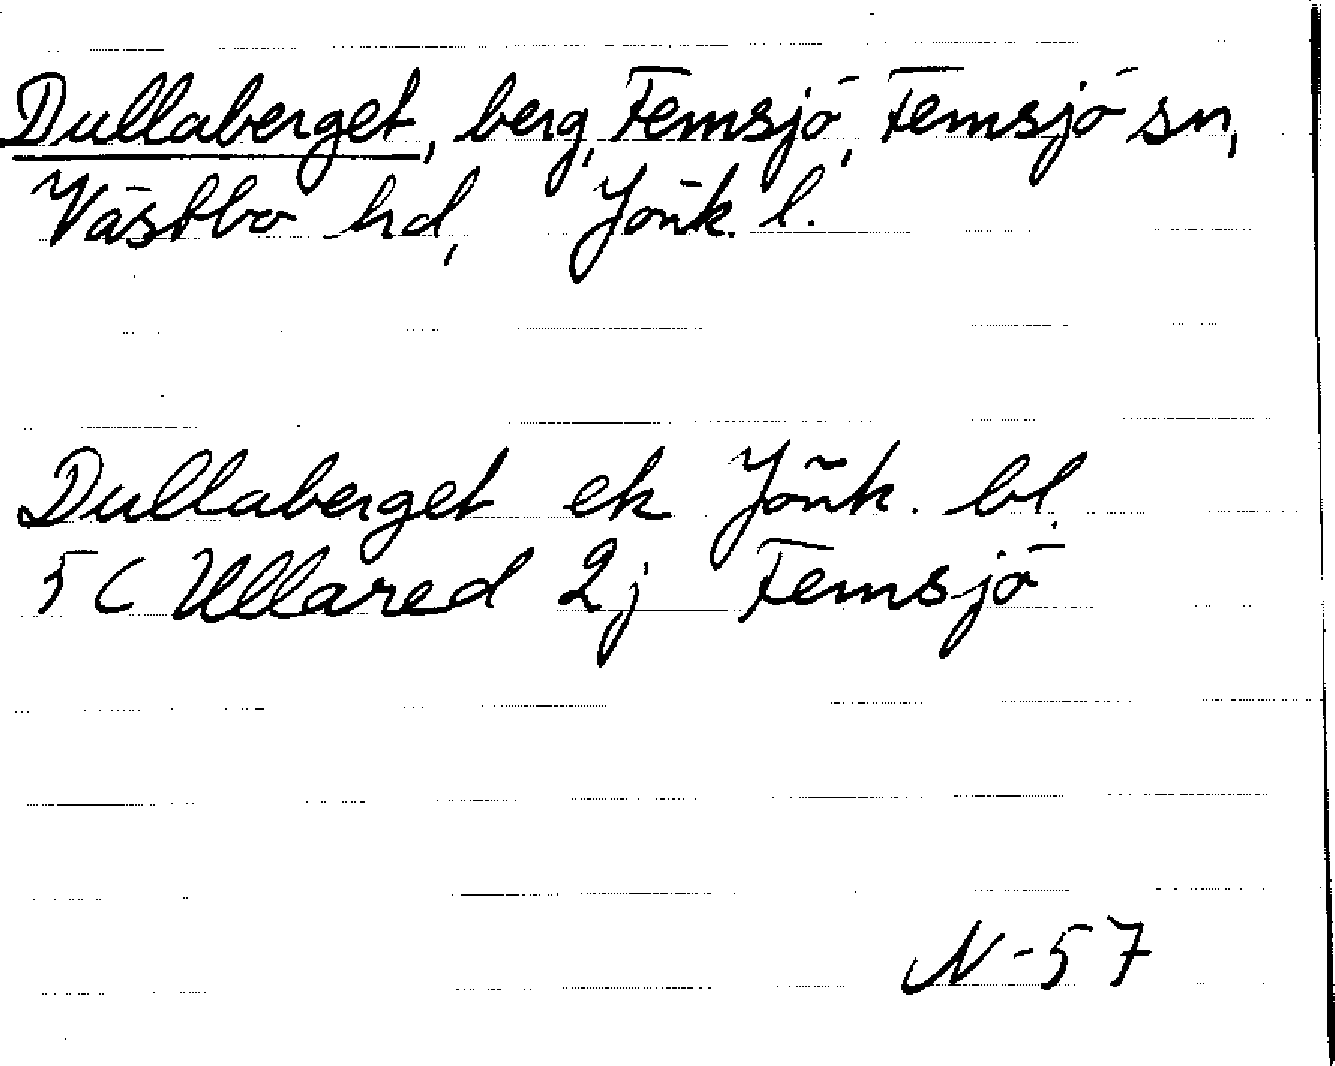 Dullaberget, berg, Femsjö, Femsjö sn,
Västbo hd, Jönk. l.
Dullaberget ek Jönk. bl.
5C Ullared 2j Femsjö
N-57